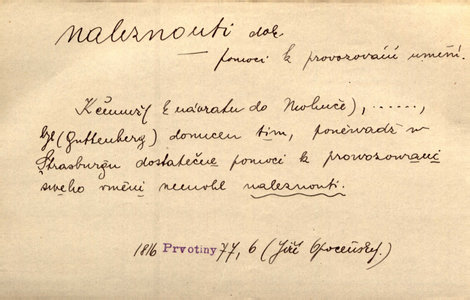 naleznouti dok
pomoci k provozování umění.
K čemuž (k návratu do Mohuče), ......,
byl (Guttenberg) donucen tím, poněwadž w
Štrasburgu dostatečné pomoci k prowozowání
swého umění nemohl naleznouti.
1816 Prvotiny 77, 6 (Jiří Opočenský.)